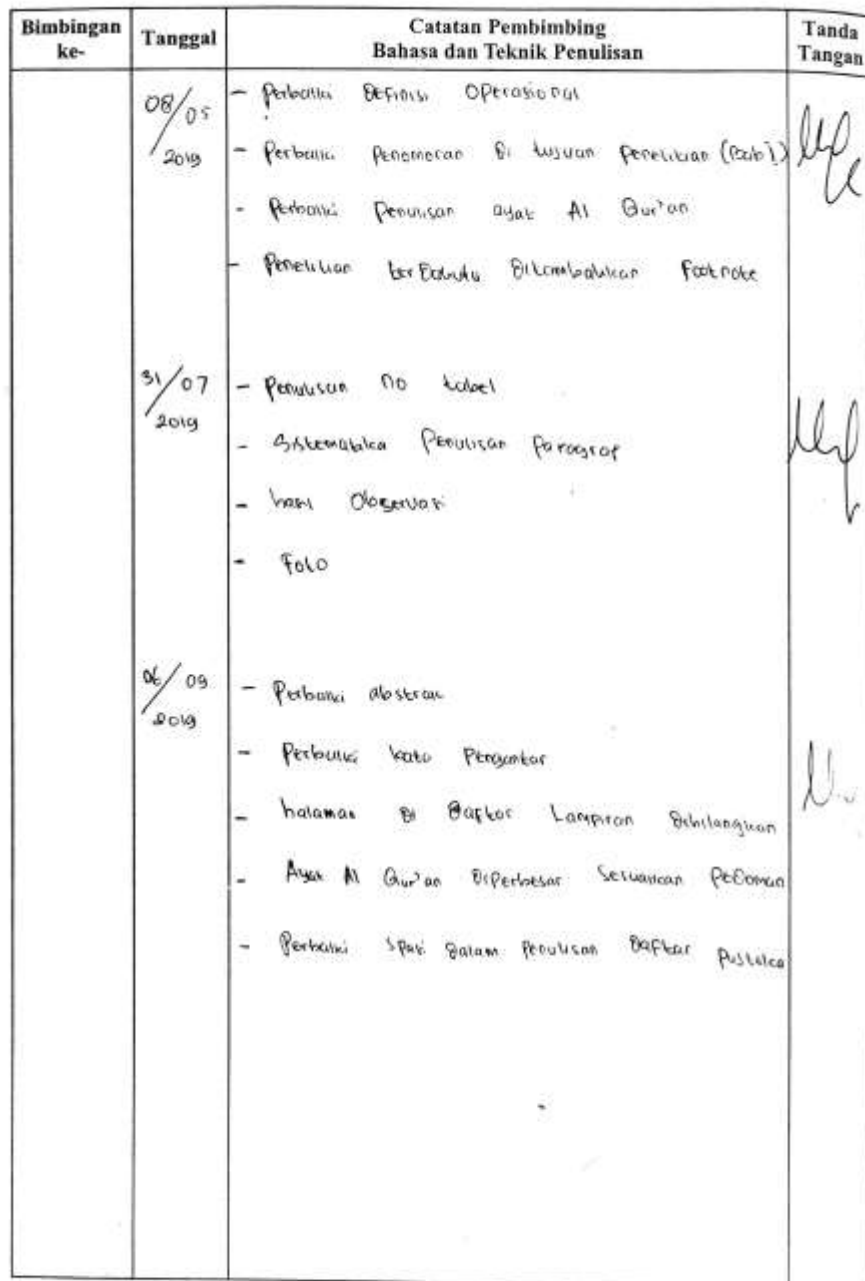 Bimbingan ke-
Tanggal
Catatan Pembimbing
Bahasa dan Teknik Penulisan
Tanda Tangan
08/05 2019
- Perbaiki Definisi Operasional
- Perbaiki Penomoran Di tujuan Penelitian (Bab I)
- Perbaiki Penulisan ayat Al Qur'an
- Penelitian terdahulu Ditambahkan Footnote
31/07 2019
- Penulisan no tabel
- Sistematika Penulisan Paragraf
- hasil Observasi
- Foto
06/09 2019
- Perbaiki abstrak
- Perbaiki kata Pengantar
- halaman Di Daftar Lampiran Dihilangkan
- Ayat Al Qur'an Diperbesar Sesuaikan Pedoman
- Perbaiki Spasi Dalam Penulisan Daftar Pustaka